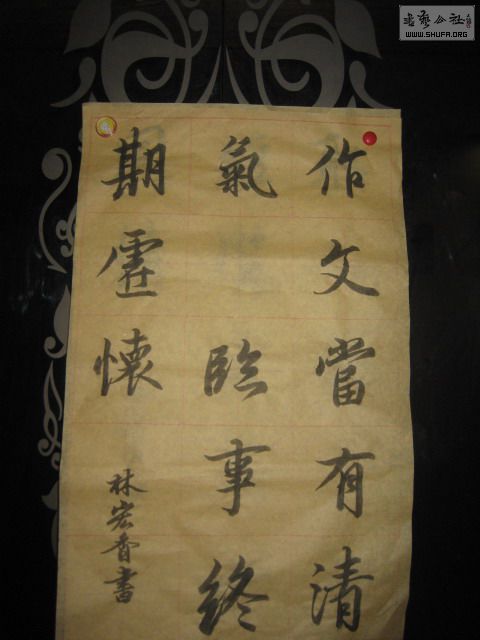 作文當有清
氣 臨事終
期虛懷
林宏香書
書藝公社
WWW.SHUFA.ORG